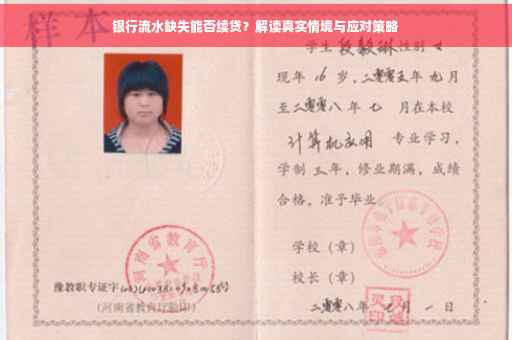 银行流水缺失能否续贷？解读真实情境与应对策略
样本
学生 段毅琳 性别 女
现年 16 岁，二零零五年 九月
至二零零八年 七 月在本校
计算机应用 专业学习，
学制 三年，修业期满，成绩
合格，准予毕业
学校（章）
校长（章）
二零零八年 月 一 日
河南省教育厅
豫教职专证字
（河南省教育厅验印）